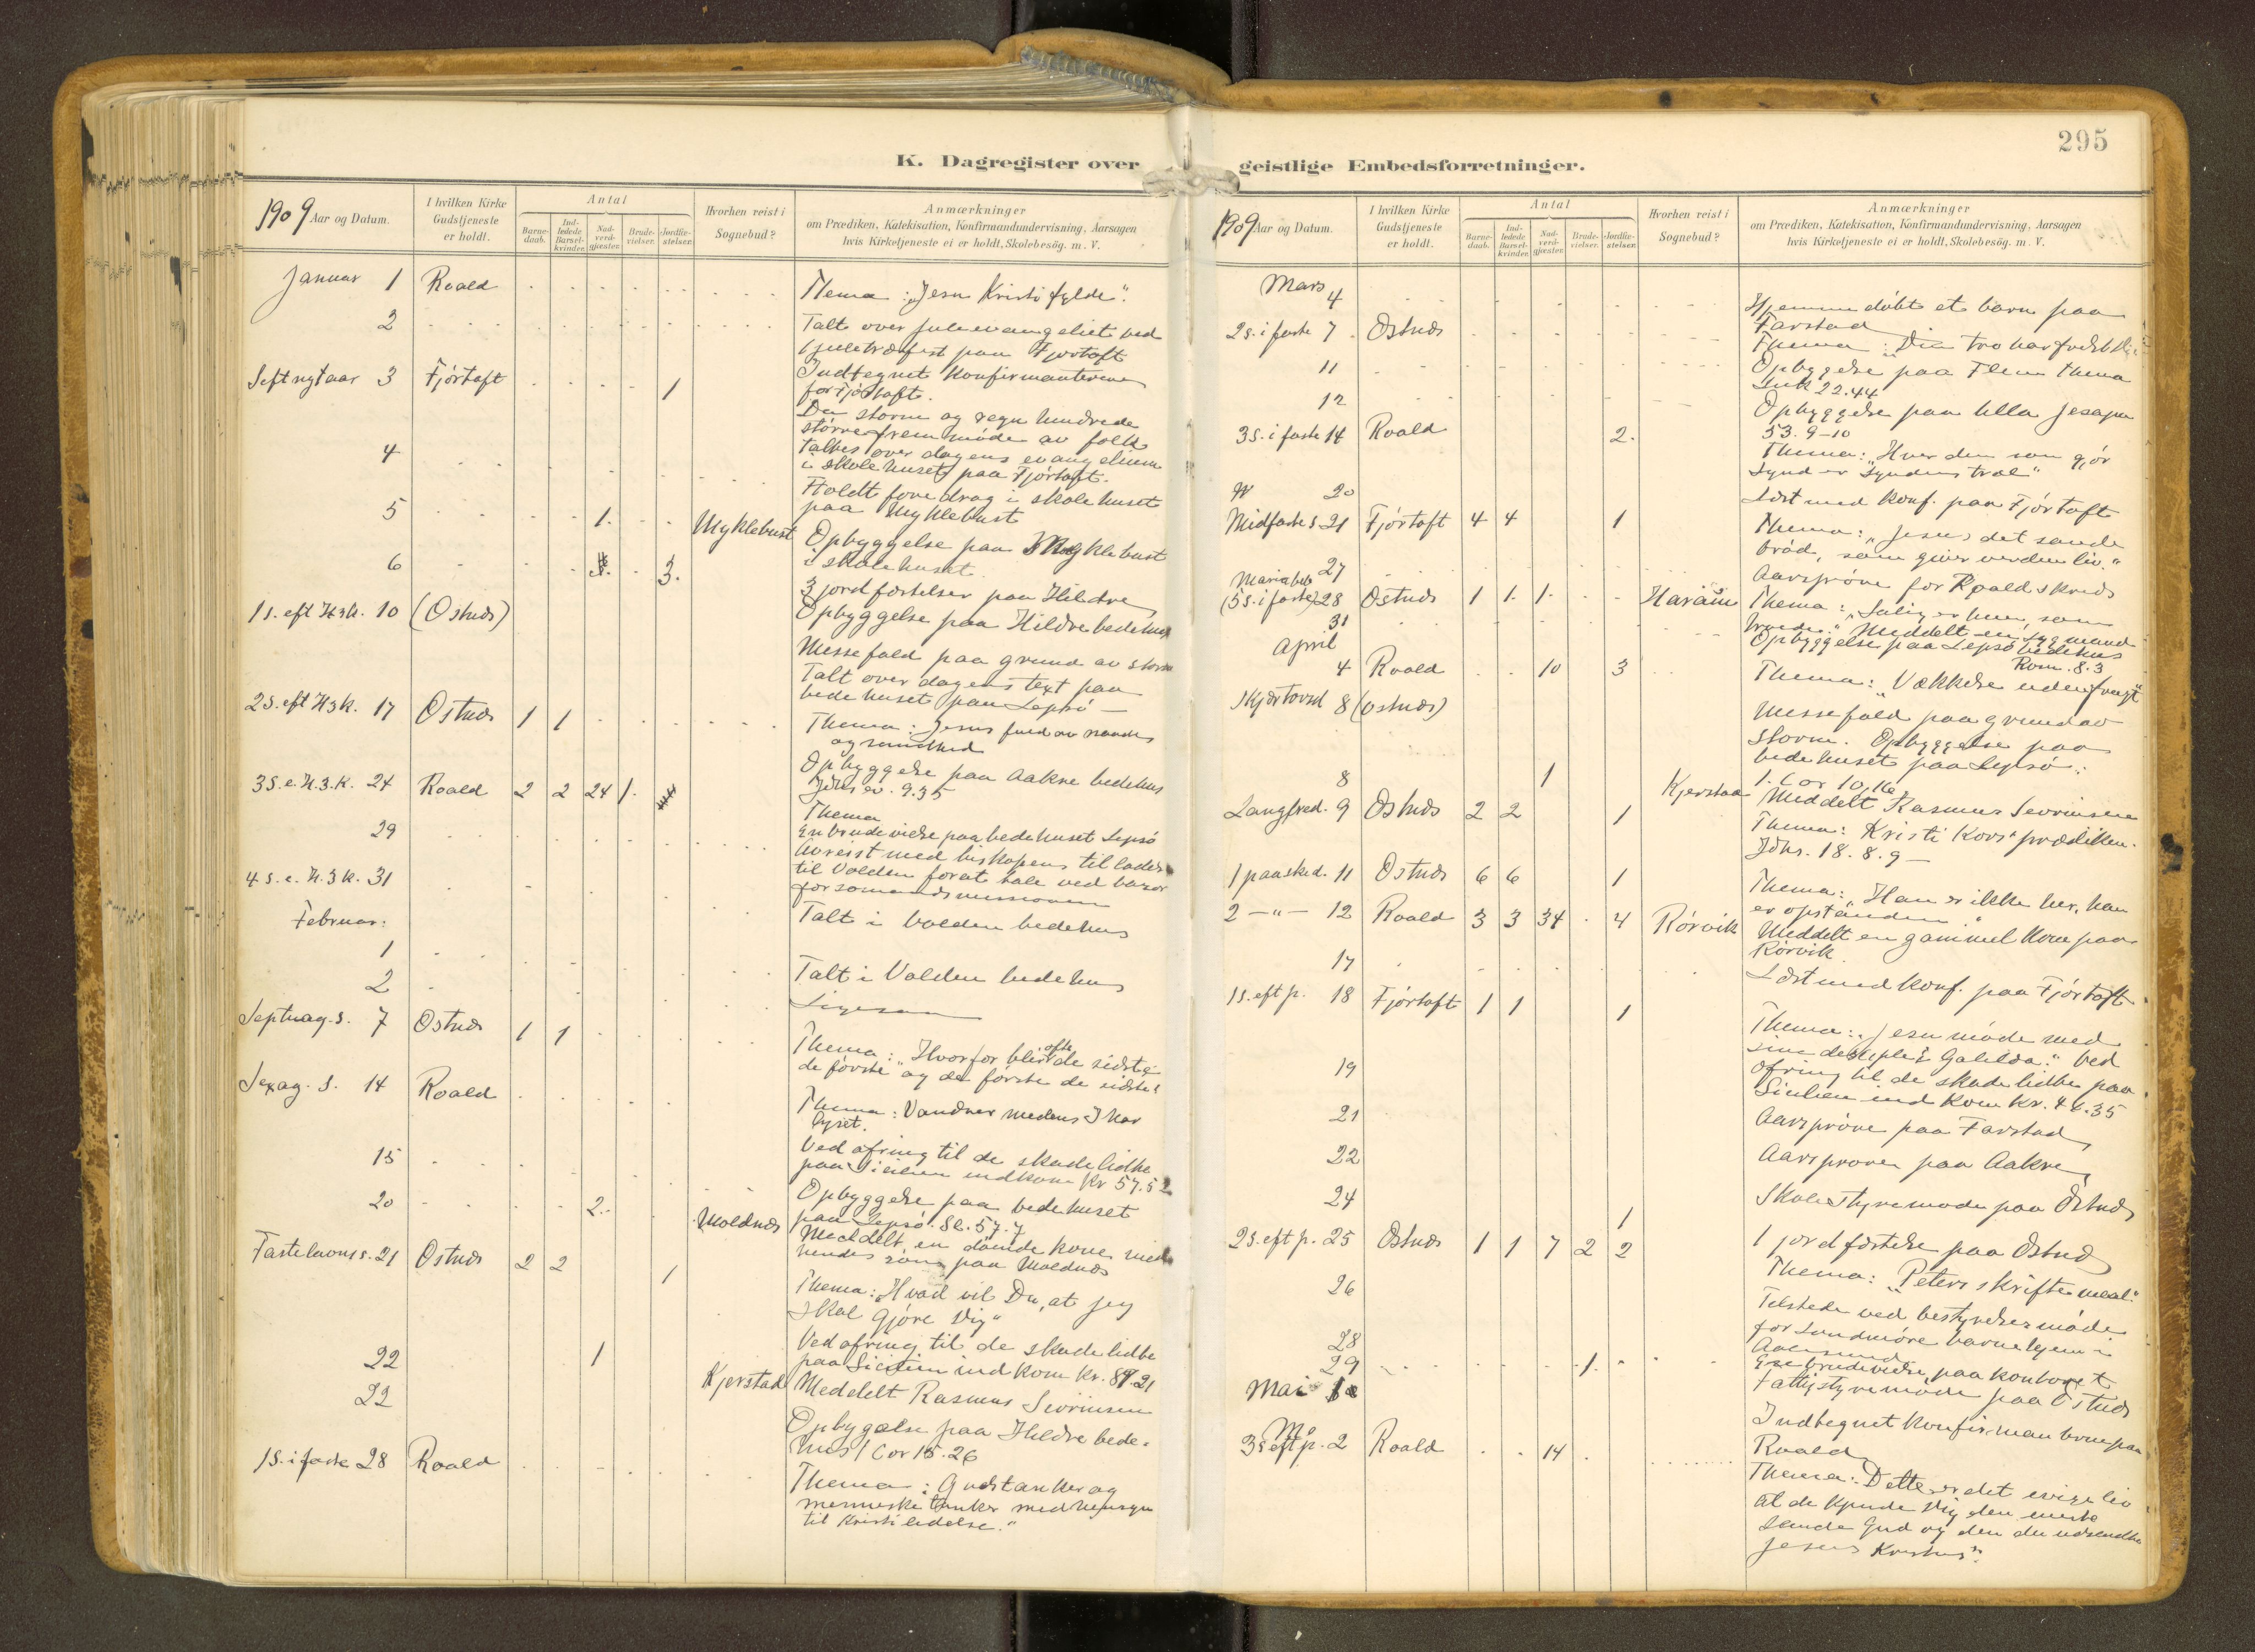 K. Dagregister over
1909 Aar og Datum.
I hvilken Kirke Gudstjeneste er holdt.
Antal
Barne-daab.
Ind-ledede Barsel-kvinder.
Nad-verd-gjæster.
Brude-vielser.
Jordfæ-stelser.
Hvorhen reist i Sognebud?
Anmærkninger
om Prædiken, Katekisation, Konfirmandundervisning, Aarsagen
hvis Kirketjeneste ei er holdt, Skolebesög. m. V.
Januar 1 Roald Thema: "Jesu Kristi fylde".
2 Talt over juleevangeliet ved
1 juletræfest paa Fjørtoft
S eft nytaar 3 Fjørtoft 1 Indtegnet konfirmanterne
for Fjørtoft.
Da storm og regn hindrede
større fremmøde av folk
talkes over dagens evangelium
i skolehuset paa Fjørtoft.
4 Holdt foredrag i skolehuset
paa Myklebust
5 1. Myklebust Opbyggelse paa Myklebust
i skolehuset.
6 3. 3 jordfæstelser paa Hildre
Opbyggelse paa Hildre bedehus
1 s. eft H3k. 10 (Østnes) Messefald paa grund av storm
Talt over dagens text paa
bedehuset paa Lepsø —
2 S. eft H3k. 17 Østnes 1 1 Thema: Jesus fuld av naade
og sandhed
Opbyggelse paa Aakre bedehus
Johs ev. 9.35
3 S. e. H.3.K. 24 Roald 2 2 24 1. Thema
En brudevielse paa bedehuset Lepsø
29 Avreist med biskopens tilladelse
til Volden forat tale ved bazar
for sømandsmissionen
4 s. e. H.3k. 31 Talt i Volden bedehus
Februar:
1 Talt i Volden bedehus
2 Ligesaa
Septuag. s. 7 Østnes 1 1 Thema: "Hvorfor blir ofte de sidste
de første og de første de sidste?
Sexag. S. 14 Roald Thema: Vandrer medens I har
lyset.
Ved ofring til de skadelidte
paa Sicilien indkom Kr 57.52
15 Opbyggelse paa bedehuset
paa Lepsø. Sl. 57.7
20 2. Moldnes Meddelt en døende kone med
hendes søn paa Moldnes
Fastelavns s. 21 Østnes 2 2 1 Thema: "Hvad vil Du, at jeg
skal gjøre Dig"
Ved ofring til de skadelidte
paa Sicilien indkom Kr. 87.21
22 1 Kjerstad Meddelt Rasmus Sevrinsen
22 Opbygelse paa Hildre bede-
hus 1 Cor 15.26
1 S. i faste 28 Roald Thema: Gudstanker og
mennesketanker med hensyn
til Kristi lidelse."
295
geistlige Embedsforretninger.
1909 Aar og Datum.
I hvilken Kirke Gudstjeneste er holdt.
Antal
Barne-daab.
Ind-ledede Barsel-kvinder.
Nad-verd-gjæster.
Brude-vielser.
Jordfæ-stelser.
Hvorhen reist i Sognebud?
Anmærkninger
om Prædiken, Katekisation, Konfirmandundervisning, Aarsagen
hvis Kirketjeneste ei er holdt, Skolebesög. m. V.
Mars
4 Hjemmedøbt et barn paa
Farstad
2 s. i faste 7 Østnes Thema: "Din tro har frelst dig"
11 Opbyggelse paa Flem thema
Luk 22.44
12 Opbyggelse paa Ulla Jesaja
53. 9-10
3 S. i faste 14 Roald 2. Thema: "Hver den som gjør
synd er syndens træl"
20 Læst med konf. paa Fjørtoft
Midfaste s 21 Fjørtoft 4 4 1 Thema: "Jesus det sande
brød, som giver verden liv."
27 Aarsprøve for Roald skreds
Mariæ beb
(5 s. i faste) 28 Østnes 1 1. 1. Haram Thema: "Salig er hun, som
troede." Meddelt en syg mand
31 Opbyggelse paa Lepsø bedehus
Rom. 8.3
April
4 Roald 10 3 Thema: "Vækkelse uden frugt"
Skjærtorsd 8 (Østnes) Messefald paa grund av
storm. Opbyggelse paa
bedehuset paa Lepsø:
1. Cor 10,16
8 1 Kjerstad Meddelt Rasmus Sevrinsen
Langfred. 9 Østnes 2 2 1 Thema: Kristi Kors' prædiken.
Johs. 18. 8. 9 —
1 paasked. 11 Østnes 6 6 1 Thema: "Han er ikke her, han
er opstanden"
2 —"— 12 Roald 3 3 34 4 Rørvik Meddelt en gammel kone paa
Rørvik.
17 Læst med konf. paa Fjørtoft
1 s. eft p. 18 Fjørtoft 1 1 1 Thema: Jesu møde med
sine disciple i Galilæa." Ved
ofring til de skadelidte paa
Sicilien ind kom Kr. 44.35
19 Aarsprøve paa Farstad
21 Aarsprøven paa Aakre
22 Skolestyremøde paa Østnes
24 1 1 jordfæstelse paa Østnes
2 S. eft p. 25 Østnes 1 1 7 2 2 Thema: "Peters skriftemaal."
26 Tilstede ved bestyrelsesmøde
for Søndmøre barnehjem i
Aalesund
28 1. En brudevielse paa kontoret
29 Fattigstyremøde paa Østnes
Mai 1 Indtegnet konfirmanterne paa
Roald
3 s eft p. 2 Roald 14 Thema: Dette er det evige liv
at de kjende Dig den eneste
sande Gud og den du udsendte
Jesus Kristus".